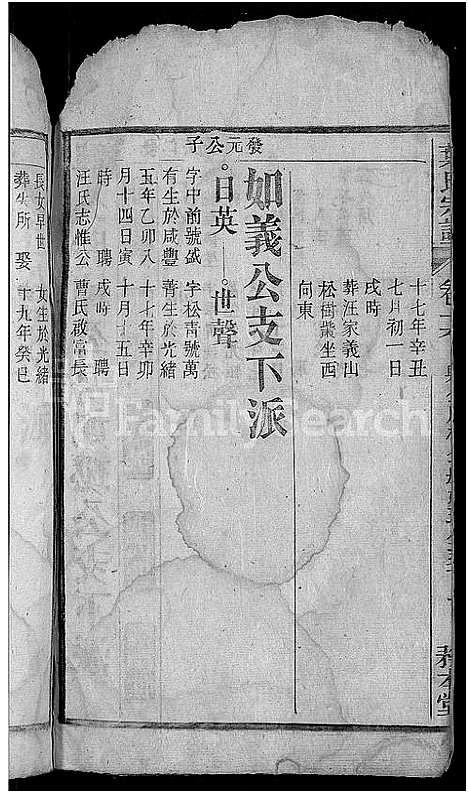 十七年辛丑
七月初一日
戌時
葬汪家義山
松樹業坐西
向東
如義公支下派
發元公子
日英
世聲
字中前號盛
字松青號萬
有生於咸豐
菁生於光緒
五年乙卯八
十七年辛卯
月十四日寅
十月十五日
時 聘
戌時 聘
汪氏志惟公
曹氏啟富長
長女早世
女生於光緒
葬失所 娶
十九年癸巳
務本堂
FamilySearch